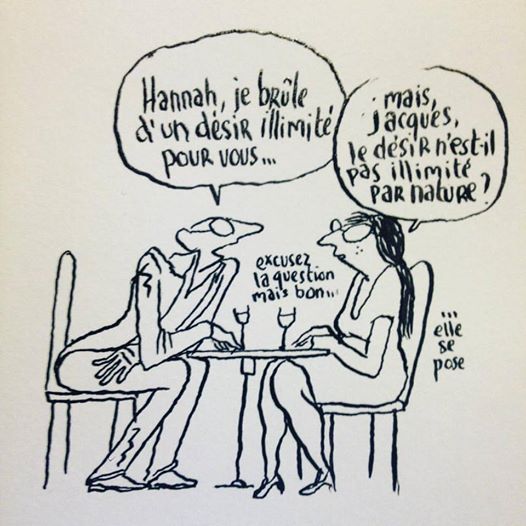 Hannah, je brûle
d'un désir illimité
pour vous...
mais,
jacques,
le désir n'est-il
pas illimité
par nature?
excusez
la question
mais bon...
...
elle
se
pose